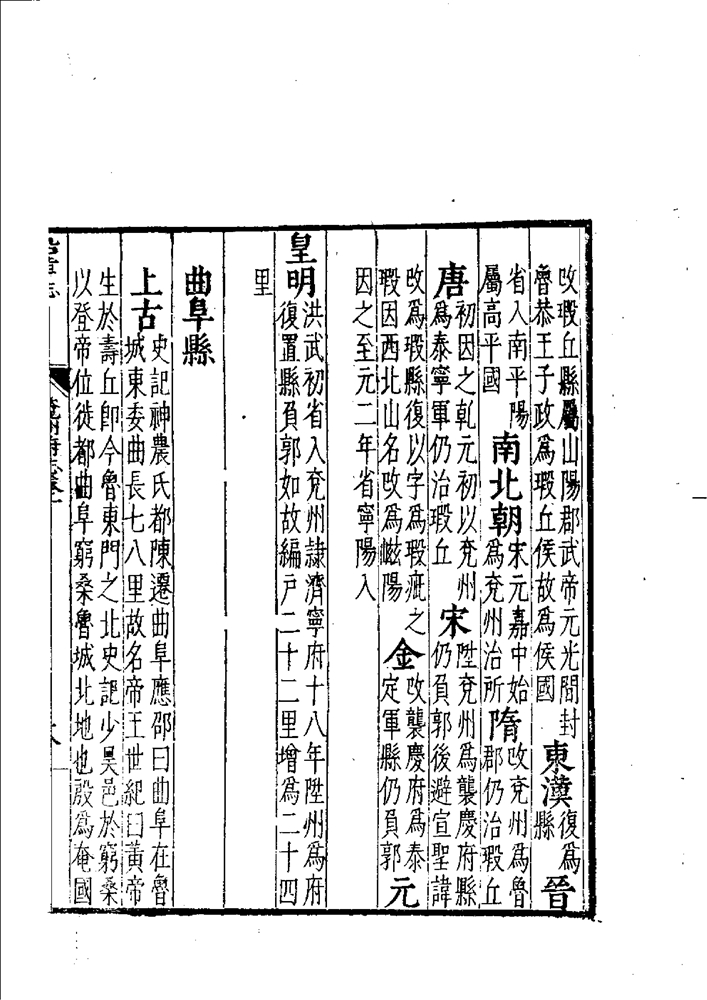 改瑕丘縣屬山陽郡武帝元光間封
魯恭王子政爲瑕丘侯故爲侯國
東漢
復爲
縣
晉
省入南平陽
屬高平國
南北朝
宋元嘉中始
爲兗州治所
隋
改兗州爲魯
郡仍治瑕丘
唐
初因之乹元初以兗州
爲泰寧軍仍治瑕丘
宋
陞兗州爲襲慶府縣
仍負郭後避宣聖諱
改爲瑕縣復以字爲瑕疵之
瑕因西北山名改爲嵫陽
金
改襲慶府爲泰
定軍縣仍負郭
元
因之至元二年省寧陽入
皇明
洪武初省入兗州隸濟寧府十八年陞州爲府
復置縣負郭如故編戶二十二里增爲二十四
里
曲阜縣
上古
史記神農氏都陳遷曲阜應邵曰曲阜在魯
城東委曲長七八里故名帝王世紀曰黃帝
生於壽丘卽今魯東門之北史記少昊邑於窮桑
以登帝位徙都曲阜窮桑魯城北地也殷爲奄國